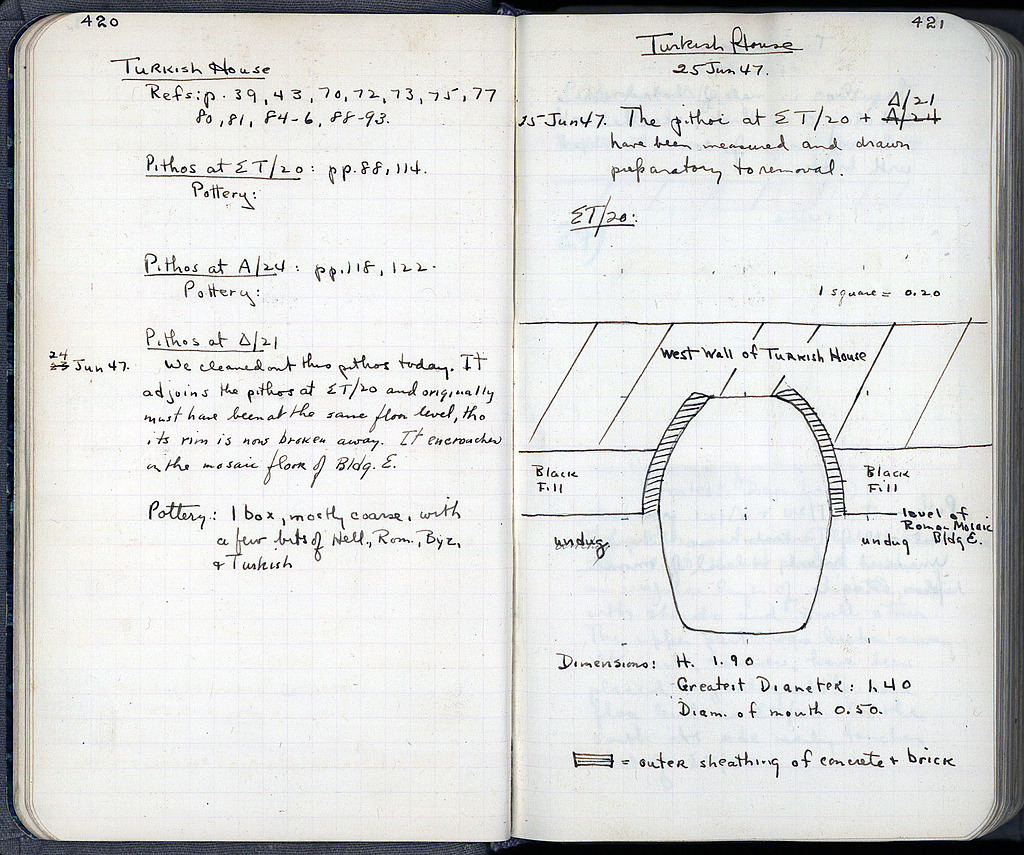 420
Turkish House
Refs: p. 39, 43, 70, 72, 73, 75, 77
80, 81, 84-6, 88-93.
Pithos at ΣT/20: pp. 88, 114.
Pottery:
Pithos at A/24: pp. 118, 122.
Pottery:
Pithos at Δ/21
24
23 Jun 47. We cleaned out this pithos today. It
adjoins the pithos at ΣT/20 and originally
must have been at the same floor level, tho
its rim is now broken away. It encroaches
on the mosaic floor of Bldg. E.
Pottery: 1 box, mostly coarse, with
a few bits of Hell., Rom., Byz,
& Turkish
421
Turkish House
25 Jun 47.
Δ/21
25 Jun 47. The pithoi at ΣT/20 + A/24
have been measured and drawn
preparatory to removal.
ΣT/20:
1 square = 0.20
West Wall of Turkish House
Black
Fill
Black
Fill
level of
Roman Mosaic
Bldg E.
undug
undug
Dimensions: H. 1.90
Greatest Diameter: 1.40
Diam. of mouth 0.50.
= outer sheathing of concrete + brick